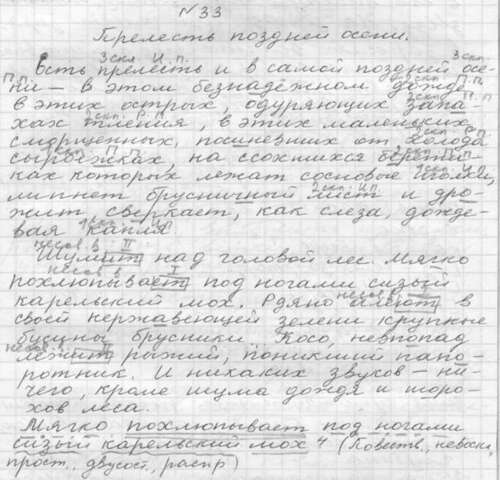 № 33
Прелесть поздней осени.
3 скл И. п. 3 скл
Есть прелесть и в самой поздней осе-
П. п. 2 скл П. п.
ни — в этом безнадежном дожде,
2 скл П. п.
в этих острых, одуряющих запа-
2 скл Р. п.
хах тления, в этих маленьких,
2 скл Р. п.
сморщенных, посиневших от холода
сыроежках, на ссохшихся беретни-
2 скл И. п.
ках которых лежат сосновые иголки,
2 скл. И. п
липнет брусничный лист и дро-
жит, сверкает, как слеза, дожде-
И. п
вая капля.
несов. в II
Шумит над головой лес. Мягко
несов в I
похлюпывает под ногами сизый
несов
карельский мох. Рдяно алеют в
своей нержавеющей зелени крупные
бусины брусники. Косо, невпопад
несов. в II
лежит рыжий, поникший папо-
ротник. И никаких звуков — ни-
чего, кроме шума дождя и шоро-
хов леса.
Мягко похлюпывает под ногами
сизый карельский мох 4 (Повеств., невоскл,
прост., двусост., распр)